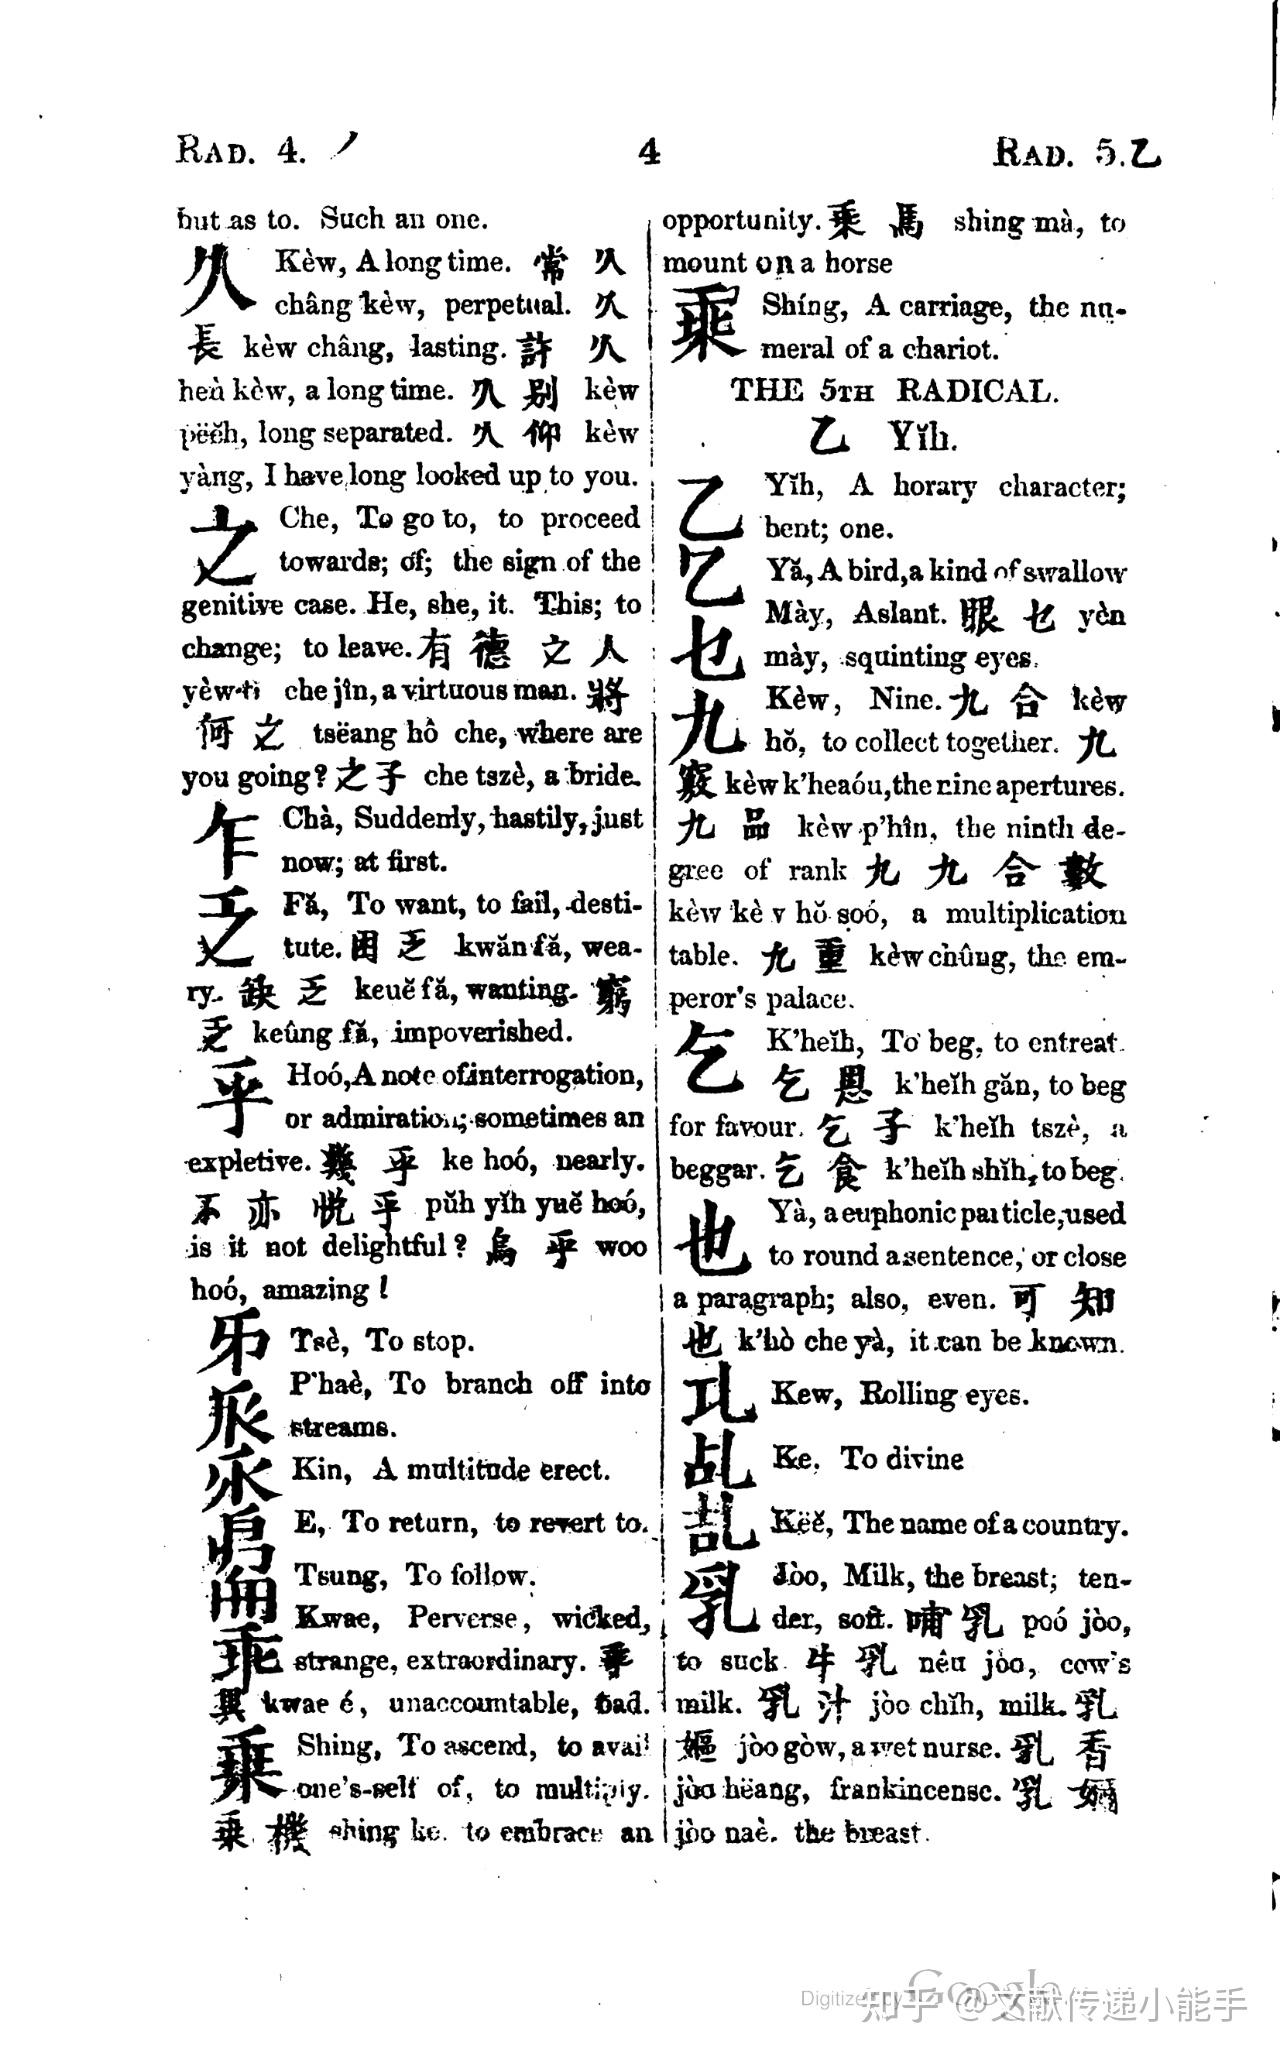 RAD. 4. 丿
4
RAD. 5. 乙
but as to. Such an one.
久 Kèw, A long time. 常 久
châng kèw, perpetual. 久
長 kèw châng, lasting. 許 久
heù kèw, a long time. 久 别 kèw
pëĕh, long separated. 久 仰 kèw
yàng, I have long looked up to you.
之 Che, To go to, to proceed
towards; of; the sign of the
genitive case. He, she, it. This; to
change; to leave. 有 德 之 人
yèw ti che jîn, a virtuous man. 將
何 之 tsëang hô che, where are
you going? 之 子 che tszè, a bride.
乍 Chà, Suddenly, hastily, just
now; at first.
乏 Fă, To want, to fail, desti-
tute. 困 乏 kwăn fă, wea-
ry. 缺 乏 keuĕ fă, wanting. 窮
乏 keûng fă, impoverished.
乎 Hoó, A note of interrogation,
or admiration; sometimes an
expletive. 幾 乎 ke hoó, nearly.
不 亦 悅 乎 pŭh yĭh yuĕ hoó,
is it not delightful? 烏 乎 woo
hoó, amazing!
Tsè, To stop.
P'haè, To branch off into
streams.
乑 Kin, A multitude erect.
E, To return, to revert to.
Tsung, To follow.
乖 Kwae, Perverse, wicked,
strange, extraordinary. 乖
異 kwae é, unaccountable, bad.
乘 Shing, To ascend, to avail
one's-self of, to multiply.
乘 機 shing ke. to embrace an
opportunity. 乘 馬 shing mà, to
mount on a horse
乘 Shíng, A carriage, the nu-
meral of a chariot.
THE 5TH RADICAL.
乙 Yĭh.
乙 Yĭh, A horary character;
bent; one.
Yă, A bird, a kind of swallow
乜 Mày, Aslant. 眼 乜 yèn
mày, squinting eyes.
九 Kèw, Nine. 九 合 kèw
hŏ, to collect together. 九
竅 kèw k'heaóu, the nine apertures.
九 品 kèw p'hîn, the ninth de-
gree of rank 九 九 合 數
kèw kè v hŏ soó, a multiplication
table. 九 重 kèw chûng, the em-
peror's palace.
乞 K'heĭh, To beg, to entreat
乞 恩 k'heĭh găn, to beg
for favour. 乞 子 k'heĭh tszè, a
beggar. 乞 食 k'heĭh shĭh, to beg.
也 Yà, a euphonic particle, used
to round a sentence, or close
a paragraph; also, even. 可 知
也 k'hò che yà, it can be known.
Kew, Rolling eyes.
乩 Ke, To divine
Këĕ, The name of a country.
乳 Jòo, Milk, the breast; ten-
der, soft. 哺 乳 poó jòo,
to suck 牛 乳 nêu jòo, cow's
milk. 乳 汁 jòo chĭh, milk. 乳
嫗 jòo gòw, a wet nurse. 乳 香
jòo hëang, frankincense. 乳 嬭
jòo naè. the breast.
Digitized by Google
知乎 @文献传递小能手